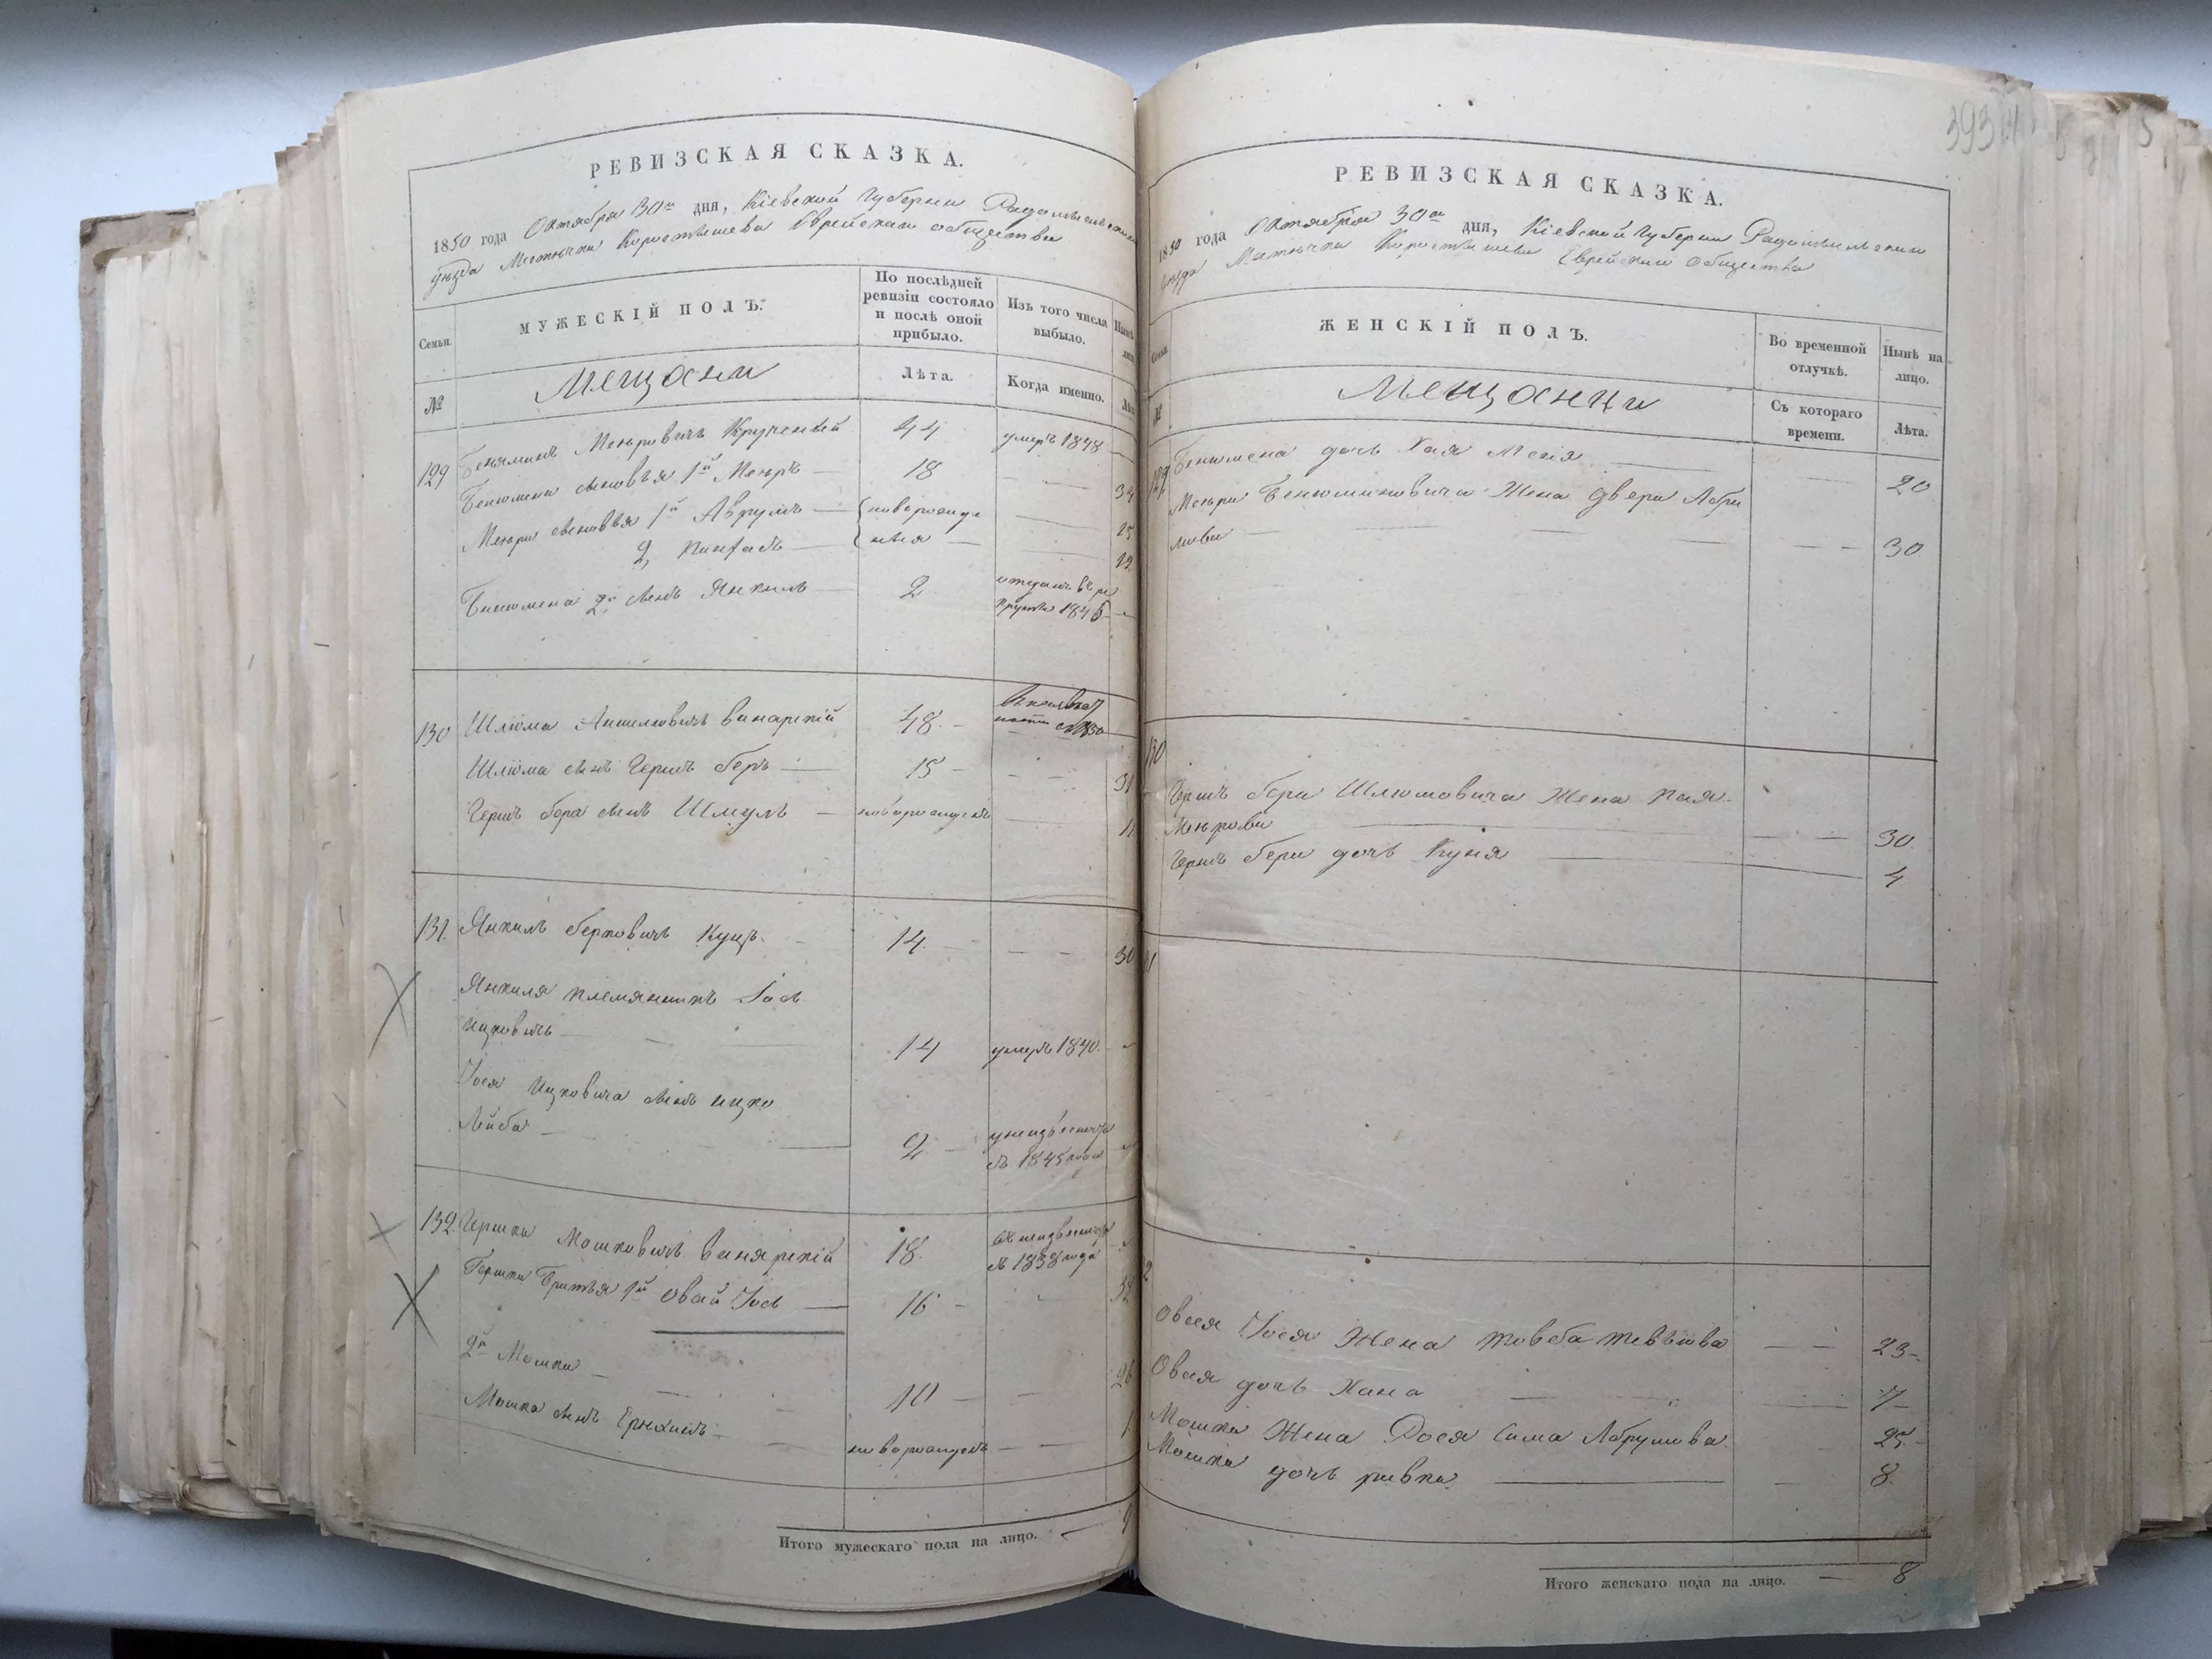 РЕВИЗСКАЯ СКАЗКА.
1850 года Октября 30го дня, Кіевской Губерніи Радомысльскаго
уезда Мистечка Коростышева Еврейскаго общества
Семьи.
МУЖЕСКІЙ ПОЛЪ.
По послѣдней
ревизіи состояло
и послѣ оной
прибыло.
Изъ того числа
выбыло.
№
Мещане
Лѣта.
Когда именно.
129 Беніаминъ Меировичъ 44 умеръ 1848
Бенюмина сыновья 1й Меиръ 18 34
Меира сыновья 1й Аврумъ новорожде 15
2, Пинхасъ ныя 12
Бенюмина 2й сынъ Янкель 2 отданъ въ ре
круты 1845
130 Шлёма Аншелювичъ Винарскій 48
Шлёма сынъ Гершъ Беръ 15 31
Гершъ Бера сынъ Шмуль новорожденъ 11
131. Янкель Берковичъ Куцъ 14 30
Янкеля племянникъ Іось
Ицковичъ 14 умеръ 1840.
Іося Ицковича сынъ Ицко
Лейба 2 у неизвестно
съ 1845 года
132 Гершко Мошковичъ Винярскій 18. въ неизвестно
съ 1838 года
Гершка братья 1й Овсей Іось 16
2й Мошко 10 26
Мошка сынъ новорожденъ 1
Итого мужескаго пола на лицо. 9
393
РЕВИЗСКАЯ СКАЗКА.
1850 года Октября 30го дня, Кіевской Губерніи Радомысльскаго
уезда Мистечка Коростышева Еврейскаго Общества
ЖЕНСКІЙ ПОЛЪ.
Во временной
отлучкѣ.
Нынѣ на
лицо.
Мещанки
Съ котораго
времени.
Лѣта.
129 Бенюмена дочь Хая 20
Меира Бенюминовича Жена Двера Абра
мова 30
130
Гершъ Бера Шлюмовича Жена Хая
Меирова 30
Гершъ Бера дочь Куня 4
Овсея Іося Жена Товба 23
Овсея дочь Хана 7
Мошка Жена Дося Сима Абрумова 25
Мошка дочь Ривка 8
Итого женскаго пола на лицо. 8